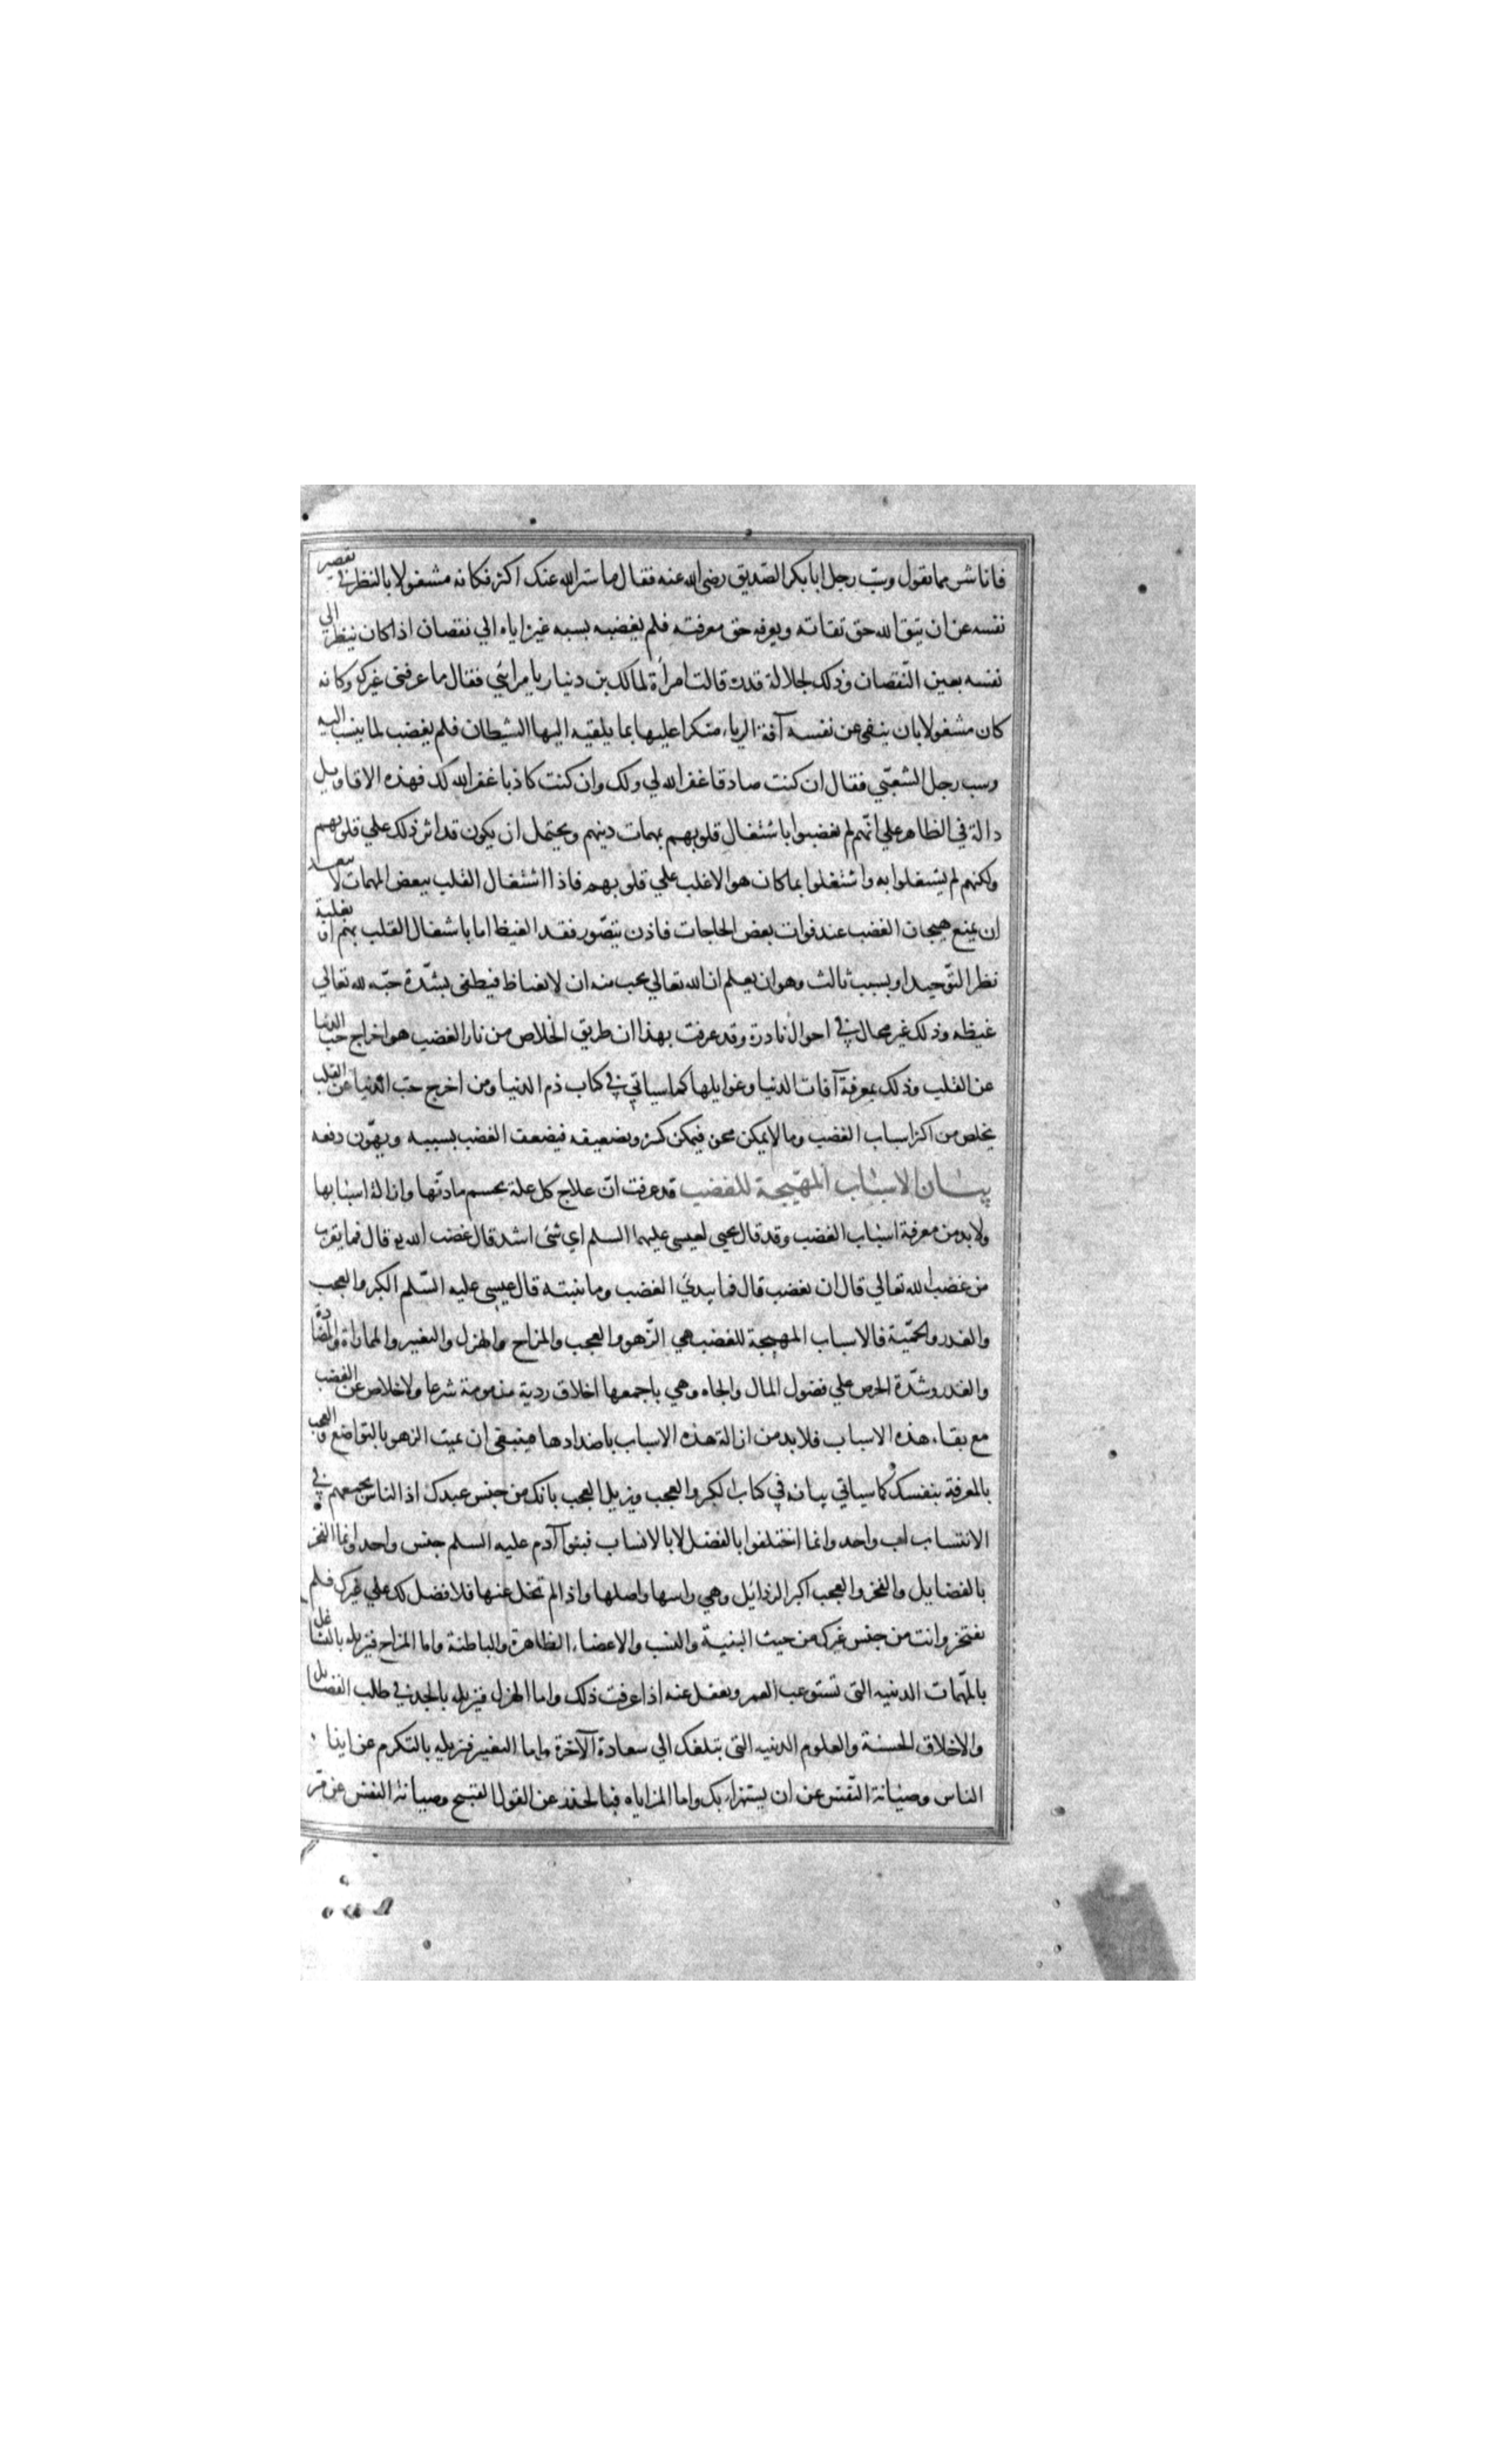 فانا شر مما تقول وسبّ رجل ابا بكر الصّديق رضى الله عنه فقال ما ستر الله عنك اكثر فكانه مشغولا بالنظر في تقصير
نفسه عن ان يتق الله حق تقاته ويعرفه حق معرفته فلم يغضبه بسبه غيره اياه الي نقصان اذ كان ينظر الي
نفسه بعين النّقصان وذلك لجلالة قدره قالت امرأة لمالك بن دينار يا مرائي فقال ما عرفنى غيرك وكانه
كان مشغولا بان ينفى عن نفسه آفة الرياء متكرا عليها بما يلقيه اليها الشيطان فلم يغضب لما ينسب اليه
وسب رجل الشعبّي فقال ان كنت صادقا غفر الله لي ولك وان كنت كاذبا غفر الله لك فهذه الاقاويل
دالة في الظاهر علي انّهم لم يغضبوا باشتغال قلوبهم بمهمات دينهم ويحتمل ان يكون قد اثر ذلك علي قلوبهم
ولكنهم لم يشتغلوا به واشتغلوا بما كان هو الاغلب علي قلوبهم فاذا اشتغال القلب ببعض المهمات لا يبعد
ان يمنع هيجان الغضب عند فوات بعض الحاجات فاذن يتصّور فقد الغيظ اما باشغال القلب بمهم او بغلبة
نظر التّوحيد او بسبب ثالث وهو ان يعلم ان الله تعالي يحب منه ان لا يغتاظ فيطفى بشّدة حبّه لله تعالي
غيظه وذلك غير محال في احوال نادرة وقد عرفت بهذا ان طريق الخلاص من نار الغضب هو اخراج حب الدنيا
عن القلب وذلك بمعرفة آفات الدنيا وغوايلها كما سياتي في كتاب ذم الدنيا ومن اخرج حبّ الدنيا عن القلب
يخلص من اكثر اسباب الغضب وما لا يمكن محوه فيمكن كسره وتضعيفه فيضعف الغضب بسببه ويهّون دفعه
بيان الاسباب المهّيجة للغضب قد عرفت انّ علاج كل علة بحسم مادتّها وازالة اسبابها
ولا بد من معرفة اسباب الغضب وقد قال يحيى لعيسى عليهما السلم اي شئ اشد قال غضب الله قال فما يقرب
من غضب الله تعالي قال ان تغضب قال فما يبدئ الغضب وما ينبته قال عيسى عليه السّلم الكبر والعجب
والغدر والحمّية فالاسباب المهيجة للغضب هي الزّهو والعجب والمزاح والهزل والتعيير والمماراة والمضادة
والغدر وشّدة الحرص علي فضول المال والجاه وهي باجمعها اخلاق ردية مذمومة شرعا ولا خلاص عن الغضب
مع بقاء هذه الاسباب فلا بد من ازالة هذه الاسباب باضدادها فينبغى ان يميت الزهو بالتواضع والعجب
بالمعرفة بنفسك كما سياتي بيانه في كتاب الكبر والعجب ويزيل العجب بانك من جنس عبدك اذ الناس بجمعهم في
الانتساب اب واحد وانما اختلفوا بالفضل لا بالانساب فبنوا آدم عليه السلم جنس واحد وانما الفخر
بالفضايل والفخر والعجب اكبر الرذائل وهي راسها واصلها واذا لم تخل عنها فلا فضل لك علي غيرك فلم
تفتخر وانت من جنس غيرك من حيث البنية والنسب والاعضاء الظاهرة والباطنة واما المزاح فيزيله بالتشاغل
بالمّهمات الدنيه التى تستوعب العمر ويفضل عنه اذا عرفت ذلك واما الهزل فيزيله بالجد في طلب الفضايل
والاخلاق الحسنة والعلوم الدنيه التى تبلغك الي سعادة الآخرة واما التعيير فزيله بالتكرم عن ايذاء
الناس وصيانة النّفس عن ان يستهزاء بك واما المزاياه فبالحذر عن القول القبيح وصيانة النفس عن مرّ